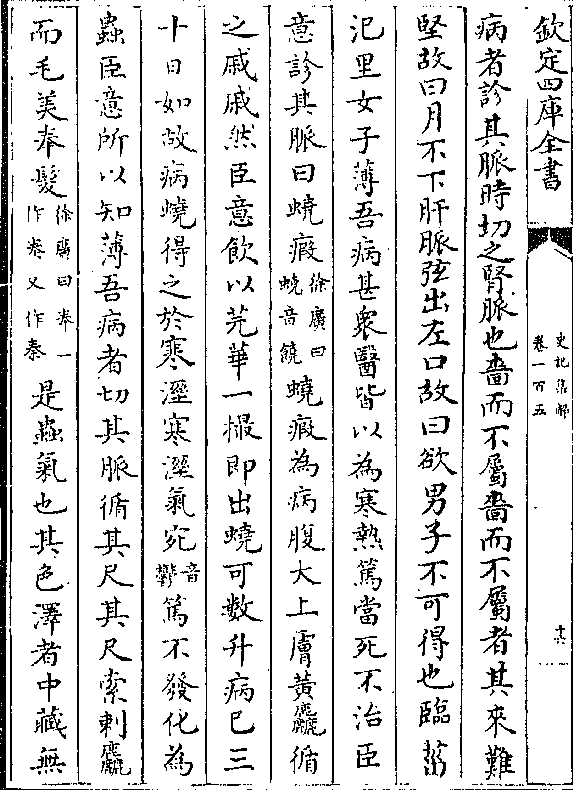 欽定四庫全書
史記集解
卷一百五
十六
病者診其脈時切之腎脈也嗇而不屬嗇而不屬者其來難
堅故曰月不下肝脈弦出左口故曰欲男子不可得也臨菑
氾里女子薄吾病甚衆醫皆以為寒熱篤當死不治臣
意診其脈曰蟯瘕徐廣曰蟯音饒蟯瘕為病腹大上膚黃麤循
之戚戚然臣意飲以芫華一撮即出蟯可數升病已三
十日如故病蟯得之於寒溼寒溼氣宛音鬱篤不發化為
蟲臣意所以知薄吾病者切其脈循其尺其尺索刺麤
而毛美奉髮徐廣曰奉一作奏又作秦是蟲氣也其色澤者中藏無